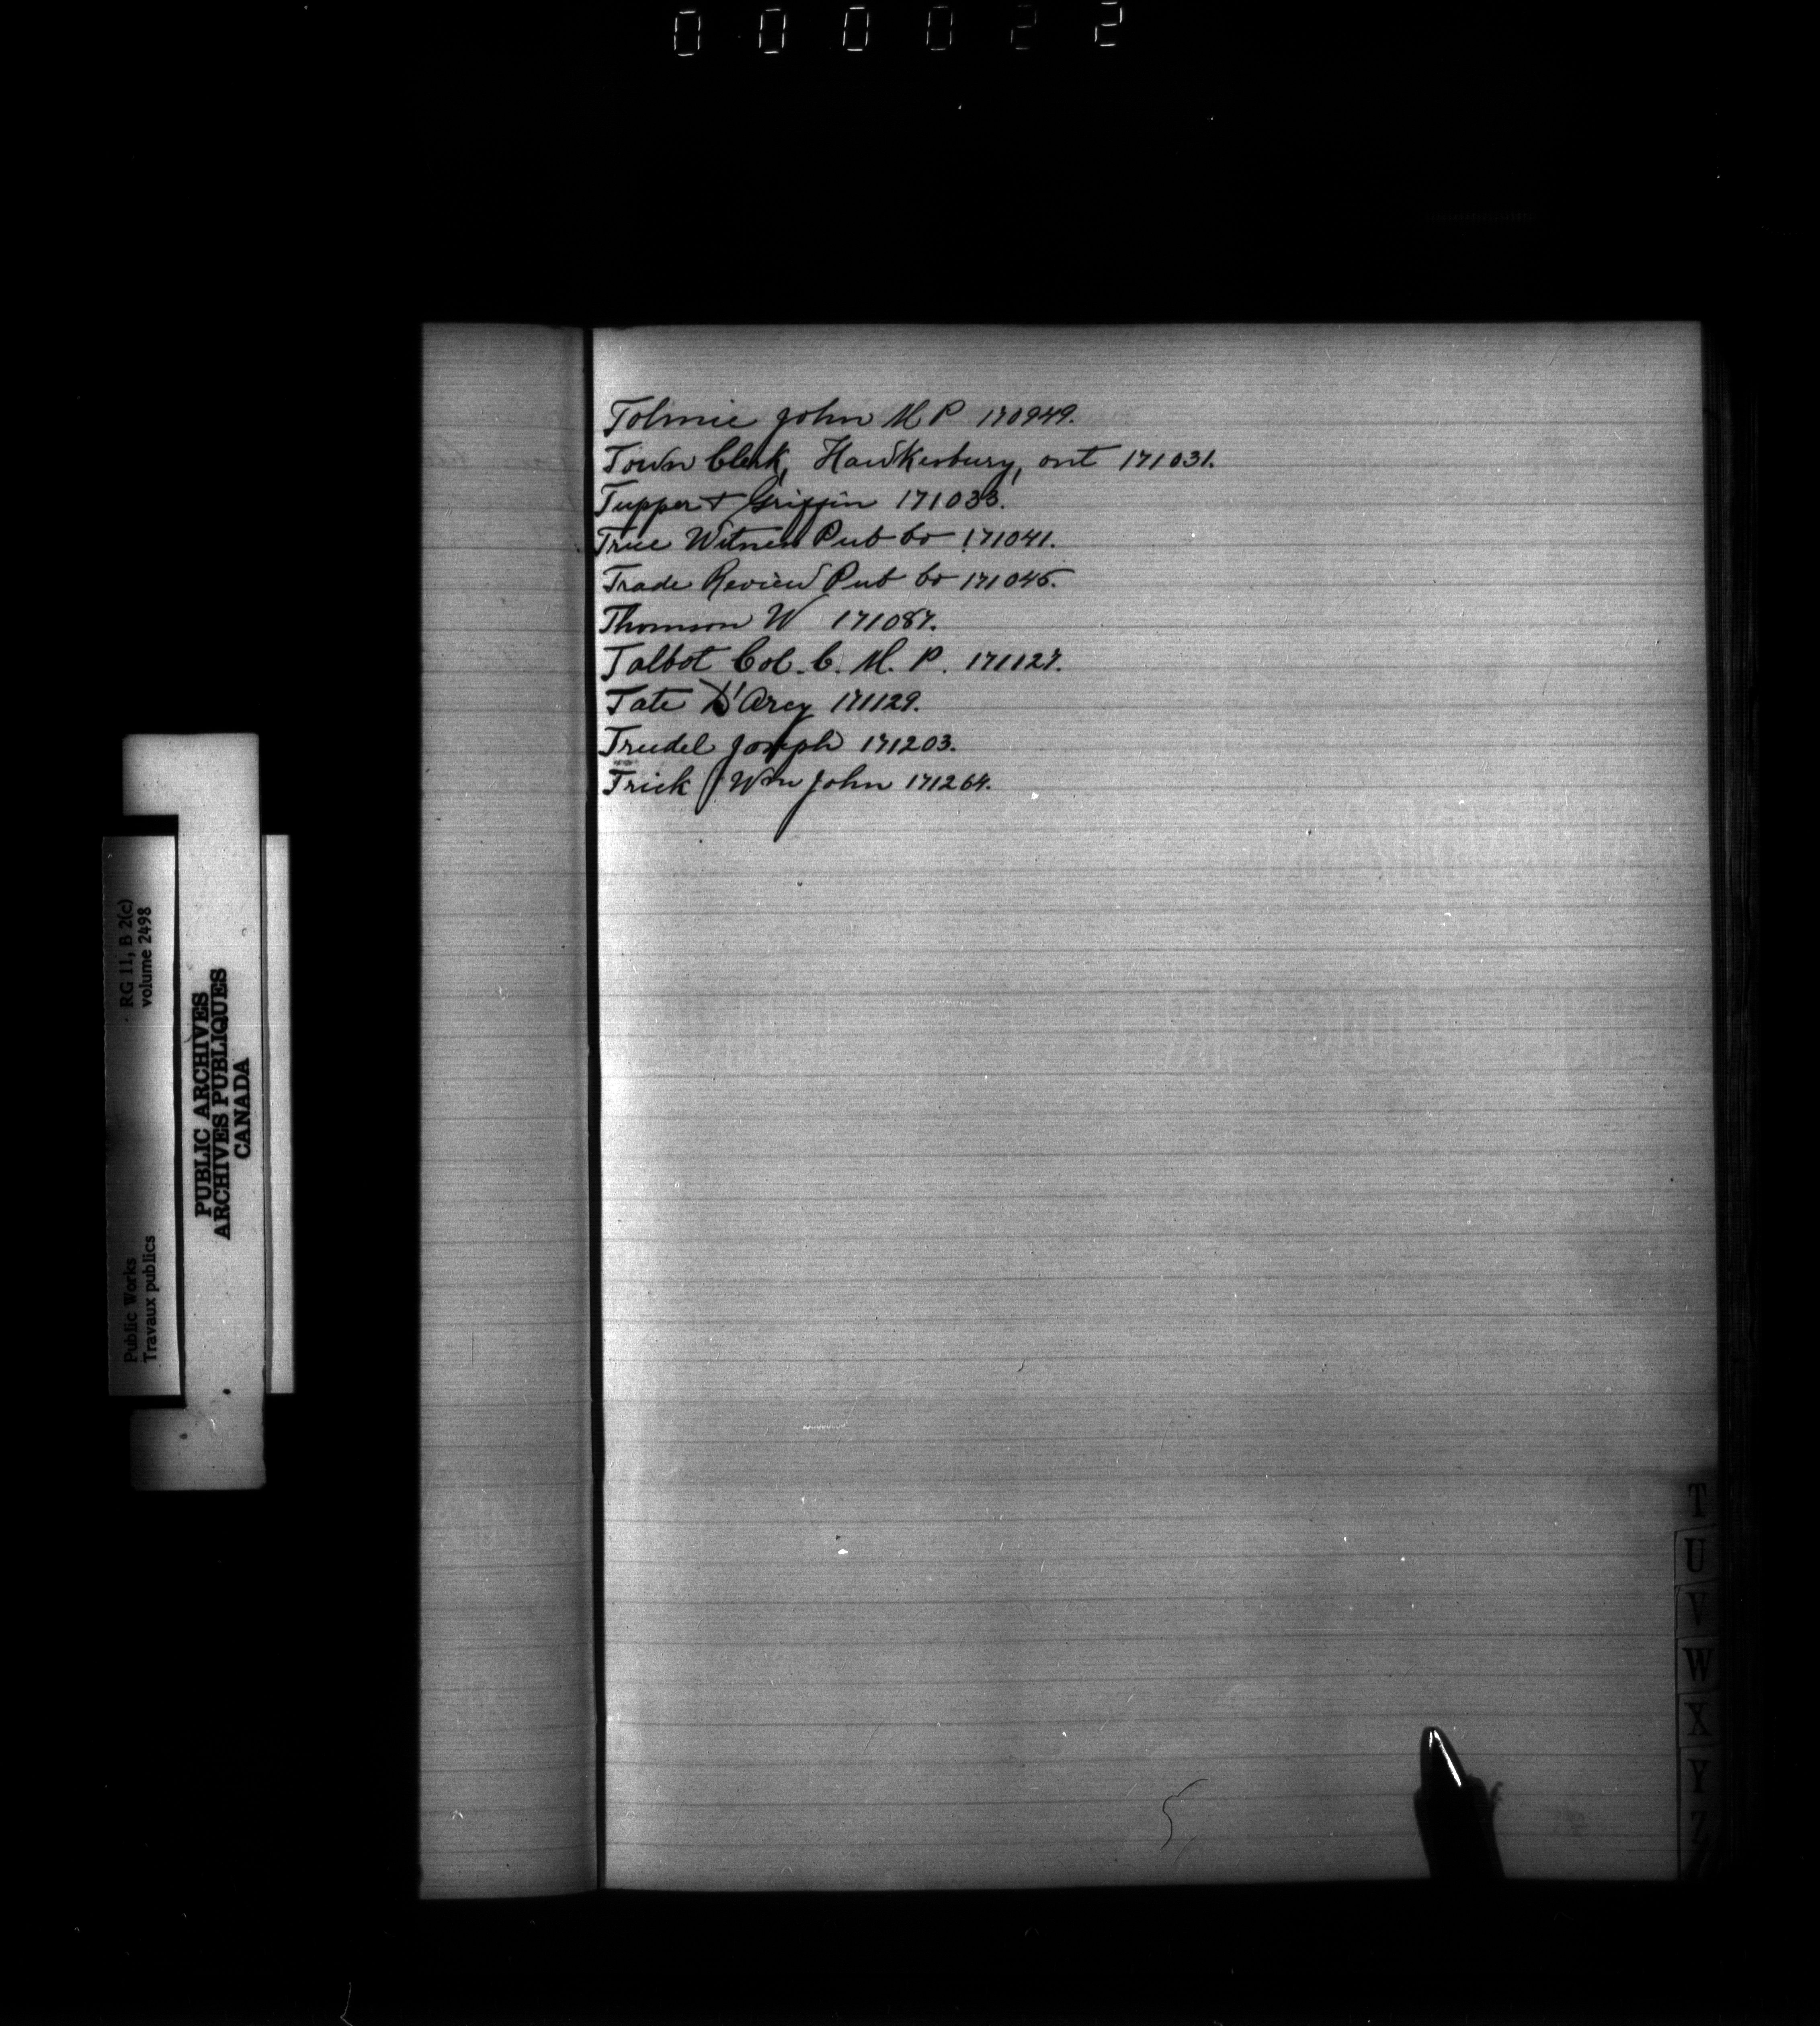 000022
Tolmie John M P 170949.
Town Clerk, Hawkesbury, ont 171031.
Tupper & Griffin 171033.
True Witness Pub Co 171041.
Trade Review Pub Co 171045.
Thomson W 171087.
Talbot Col. C. M. P. 171127.
Tate D'Arcy 171129.
Trudel Joseph 171203.
Trick Wm John 171264.
RG 11, B 2(c)
volume 2498
Public Works
Travaux publics
PUBLIC ARCHIVES
ARCHIVES PUBLIQUES
CANADA
T
U
V
W
X
Y
Z